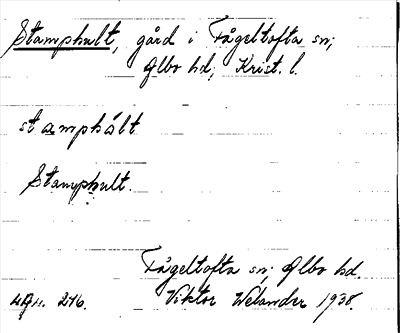 Stamphult, gård i Fågeltofta sn;
Albo hd; Krist. l.
stamphålt
Stamphult.
Fågeltofta sn; Albo hd.
Viktor Welander 1938.
246.